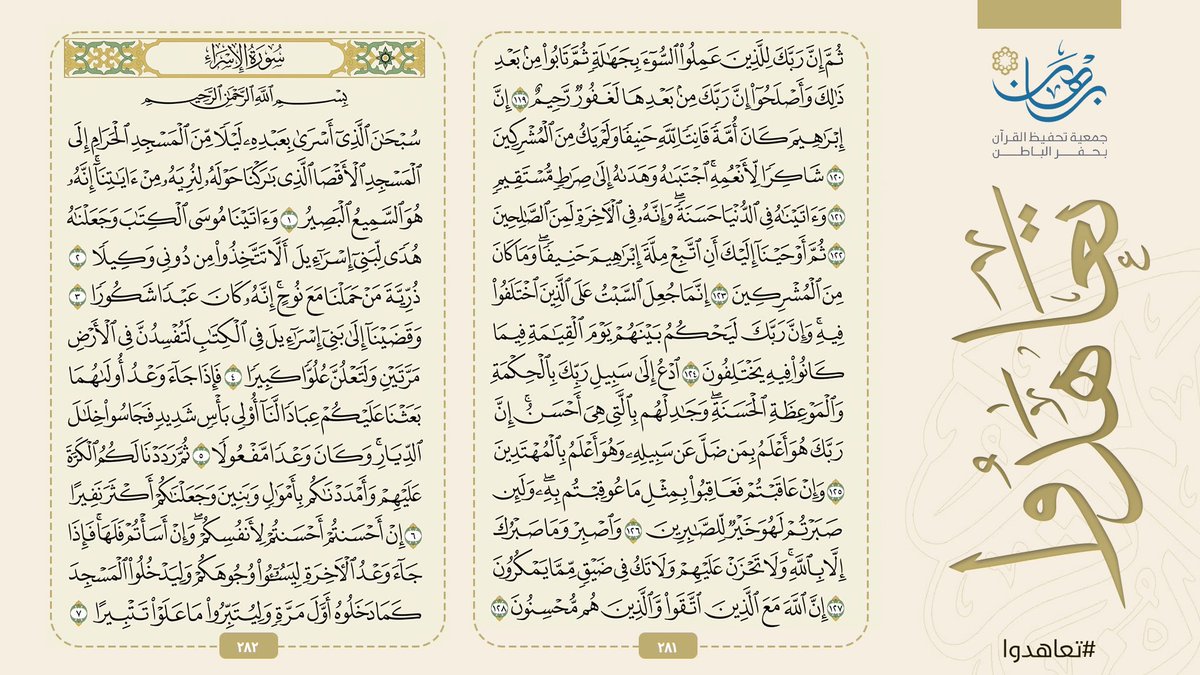 برهان
جمعية تحفيظ القرآن
بحفر الباطن
تعاهدوا
#تعاهدوا
ثُمَّ إِنَّ رَبَّكَ لِلَّذِينَ عَمِلُوا۟ ٱلسُّوٓءَ بِجَهَٰلَةٍ ثُمَّ تَابُوا۟ مِنۢ بَعْدِ
ذَٰلِكَ وَأَصْلَحُوٓا۟ إِنَّ رَبَّكَ مِنۢ بَعْدِهَا لَغَفُورٌ رَّحِيمٌ ١١٩ إِنَّ
إِبْرَٰهِيمَ كَانَ أُمَّةً قَانِتًا لِّلَّهِ حَنِيفًا وَلَمْ يَكُ مِنَ ٱلْمُشْرِكِينَ
١٢٠ شَاكِرًا لِّأَنْعُمِهِ ۚ ٱجْتَبَىٰهُ وَهَدَىٰهُ إِلَىٰ صِرَٰطٍ مُّسْتَقِيمٍ
١٢١ وَءَاتَيْنَٰهُ فِى ٱلدُّنْيَا حَسَنَةً ۖ وَإِنَّهُۥ فِى ٱلْءَاخِرَةِ لَمِنَ ٱلصَّٰلِحِينَ
١٢٢ ثُمَّ أَوْحَيْنَآ إِلَيْكَ أَنِ ٱتَّبِعْ مِلَّةَ إِبْرَٰهِيمَ حَنِيفًا ۖ وَمَا كَانَ
مِنَ ٱلْمُشْرِكِينَ ١٢٣ إِنَّمَا جُعِلَ ٱلسَّبْتُ عَلَى ٱلَّذِينَ ٱخْتَلَفُوا۟
فِيهِ ۚ وَإِنَّ رَبَّكَ لَيَحْكُمُ بَيْنَهُمْ يَوْمَ ٱلْقِيَٰمَةِ فِيمَا
كَانُوا۟ فِيهِ يَخْتَلِفُونَ ١٢٤ ٱدْعُ إِلَىٰ سَبِيلِ رَبِّكَ بِٱلْحِكْمَةِ
وَٱلْمَوْعِظَةِ ٱلْحَسَنَةِ ۖ وَجَٰدِلْهُم بِٱلَّتِى هِىَ أَحْسَنُ ۚ إِنَّ
رَبَّكَ هُوَ أَعْلَمُ بِمَن ضَلَّ عَن سَبِيلِهِۦ وَهُوَ أَعْلَمُ بِٱلْمُهْتَدِينَ
١٢٥ وَإِنْ عَاقَبْتُمْ فَعَاقِبُوا۟ بِمِثْلِ مَا عُوقِبْتُم بِهِۦ ۖ وَلَئِن
صَبَرْتُمْ لَهُوَ خَيْرٌ لِّلصَّٰبِرِينَ ١٢٦ وَٱصْبِرْ وَمَا صَبْرُكَ
إِلَّا بِٱللَّهِ ۚ وَلَا تَحْزَنْ عَلَيْهِمْ وَلَا تَكُ فِى ضَيْقٍ مِّمَّا يَمْكُرُونَ
١٢٧ إِنَّ ٱللَّهَ مَعَ ٱلَّذِينَ ٱتَّقَوا۟ وَّٱلَّذِينَ هُم مُّحْسِنُونَ ١٢٨
٢٨١
سُورَةُ الإِسْرَاءِ
بِسْمِ ٱللَّهِ ٱلرَّحْمَٰنِ ٱلرَّحِيمِ
سُبْحَٰنَ ٱلَّذِىٓ أَسْرَىٰ بِعَبْدِهِۦ لَيْلًا مِّنَ ٱلْمَسْجِدِ ٱلْحَرَامِ إِلَى
ٱلْمَسْجِدِ ٱلْأَقْصَا ٱلَّذِى بَٰرَكْنَا حَوْلَهُۥ لِنُرِيَهُۥ مِنْ ءَايَٰتِنَآ ۚ إِنَّهُۥ
هُوَ ٱلسَّمِيعُ ٱلْبَصِيرُ ١ وَءَاتَيْنَا مُوسَى ٱلْكِتَٰبَ وَجَعَلْنَٰهُ
هُدًى لِّبَنِىٓ إِسْرَٰٓءِيلَ أَلَّا تَتَّخِذُوا۟ مِن دُونِى وَكِيلًا ٢
ذُرِّيَّةَ مَنْ حَمَلْنَا مَعَ نُوحٍ ۚ إِنَّهُۥ كَانَ عَبْدًا شَكُورًا ٣
وَقَضَيْنَآ إِلَىٰ بَنِىٓ إِسْرَٰٓءِيلَ فِى ٱلْكِتَٰبِ لَتُفْسِدُنَّ فِى ٱلْأَرْضِ
مَرَّتَيْنِ وَلَتَعْلُنَّ عُلُوًّا كَبِيرًا ٤ فَإِذَا جَآءَ وَعْدُ أُولَىٰهُمَا
بَعَثْنَا عَلَيْكُمْ عِبَادًا لَّنَآ أُو۟لِى بَأْسٍ شَدِيدٍ فَجَاسُوا۟ خِلَٰلَ
ٱلدِّيَارِ ۚ وَكَانَ وَعْدًا مَّفْعُولًا ٥ ثُمَّ رَدَدْنَا لَكُمُ ٱلْكَرَّةَ
عَلَيْهِمْ وَأَمْدَدْنَٰكُم بِأَمْوَٰلٍ وَبَنِينَ وَجَعَلْنَٰكُمْ أَكْثَرَ نَفِيرًا
٦ إِنْ أَحْسَنتُمْ أَحْسَنتُمْ لِأَنفُسِكُمْ ۖ وَإِنْ أَسَأْتُمْ فَلَهَا ۚ فَإِذَا
جَآءَ وَعْدُ ٱلْءَاخِرَةِ لِيَسُۥٓـُٔوا۟ وُجُوهَكُمْ وَلِيَدْخُلُوا۟ ٱلْمَسْجِدَ
كَمَا دَخَلُوهُ أَوَّلَ مَرَّةٍ وَلِيُتَبِّرُوا۟ مَا عَلَوْا۟ تَتْبِيرًا ٧
٢٨٢